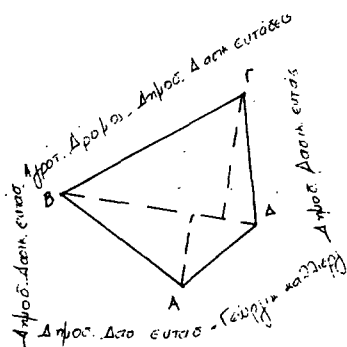 Αγροτ. Δρόμος - Δημοσ. Δασικ. εκτάσεις
Γ
Δημοσ. Δασικ. εκτάσ
Β
Δημοσ. Δασικ. εκτάσ
Δ
Α
Δημοσ. Δασ εκτασ - Γεωργικ καλλιεργ